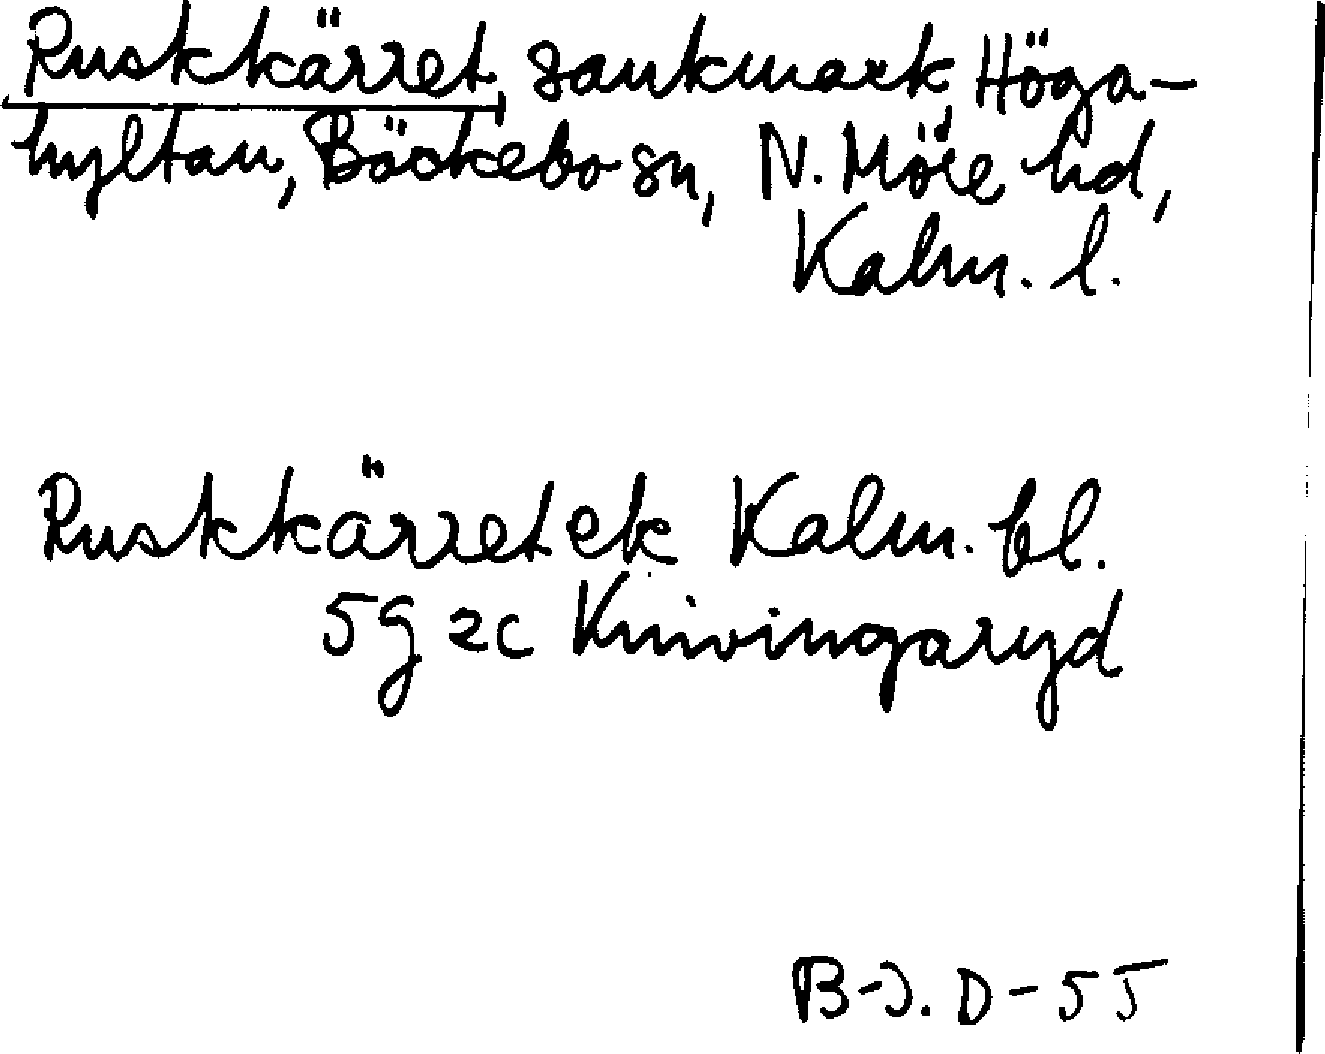 Ruskkärret, sankmark, Höga-
hyltan, Bäckebo sn, N. Möre hd,
Kalm. l.
Ruskkärret ek Kalm. bl.
5g 2c Knivingaryd
B-J. D-55